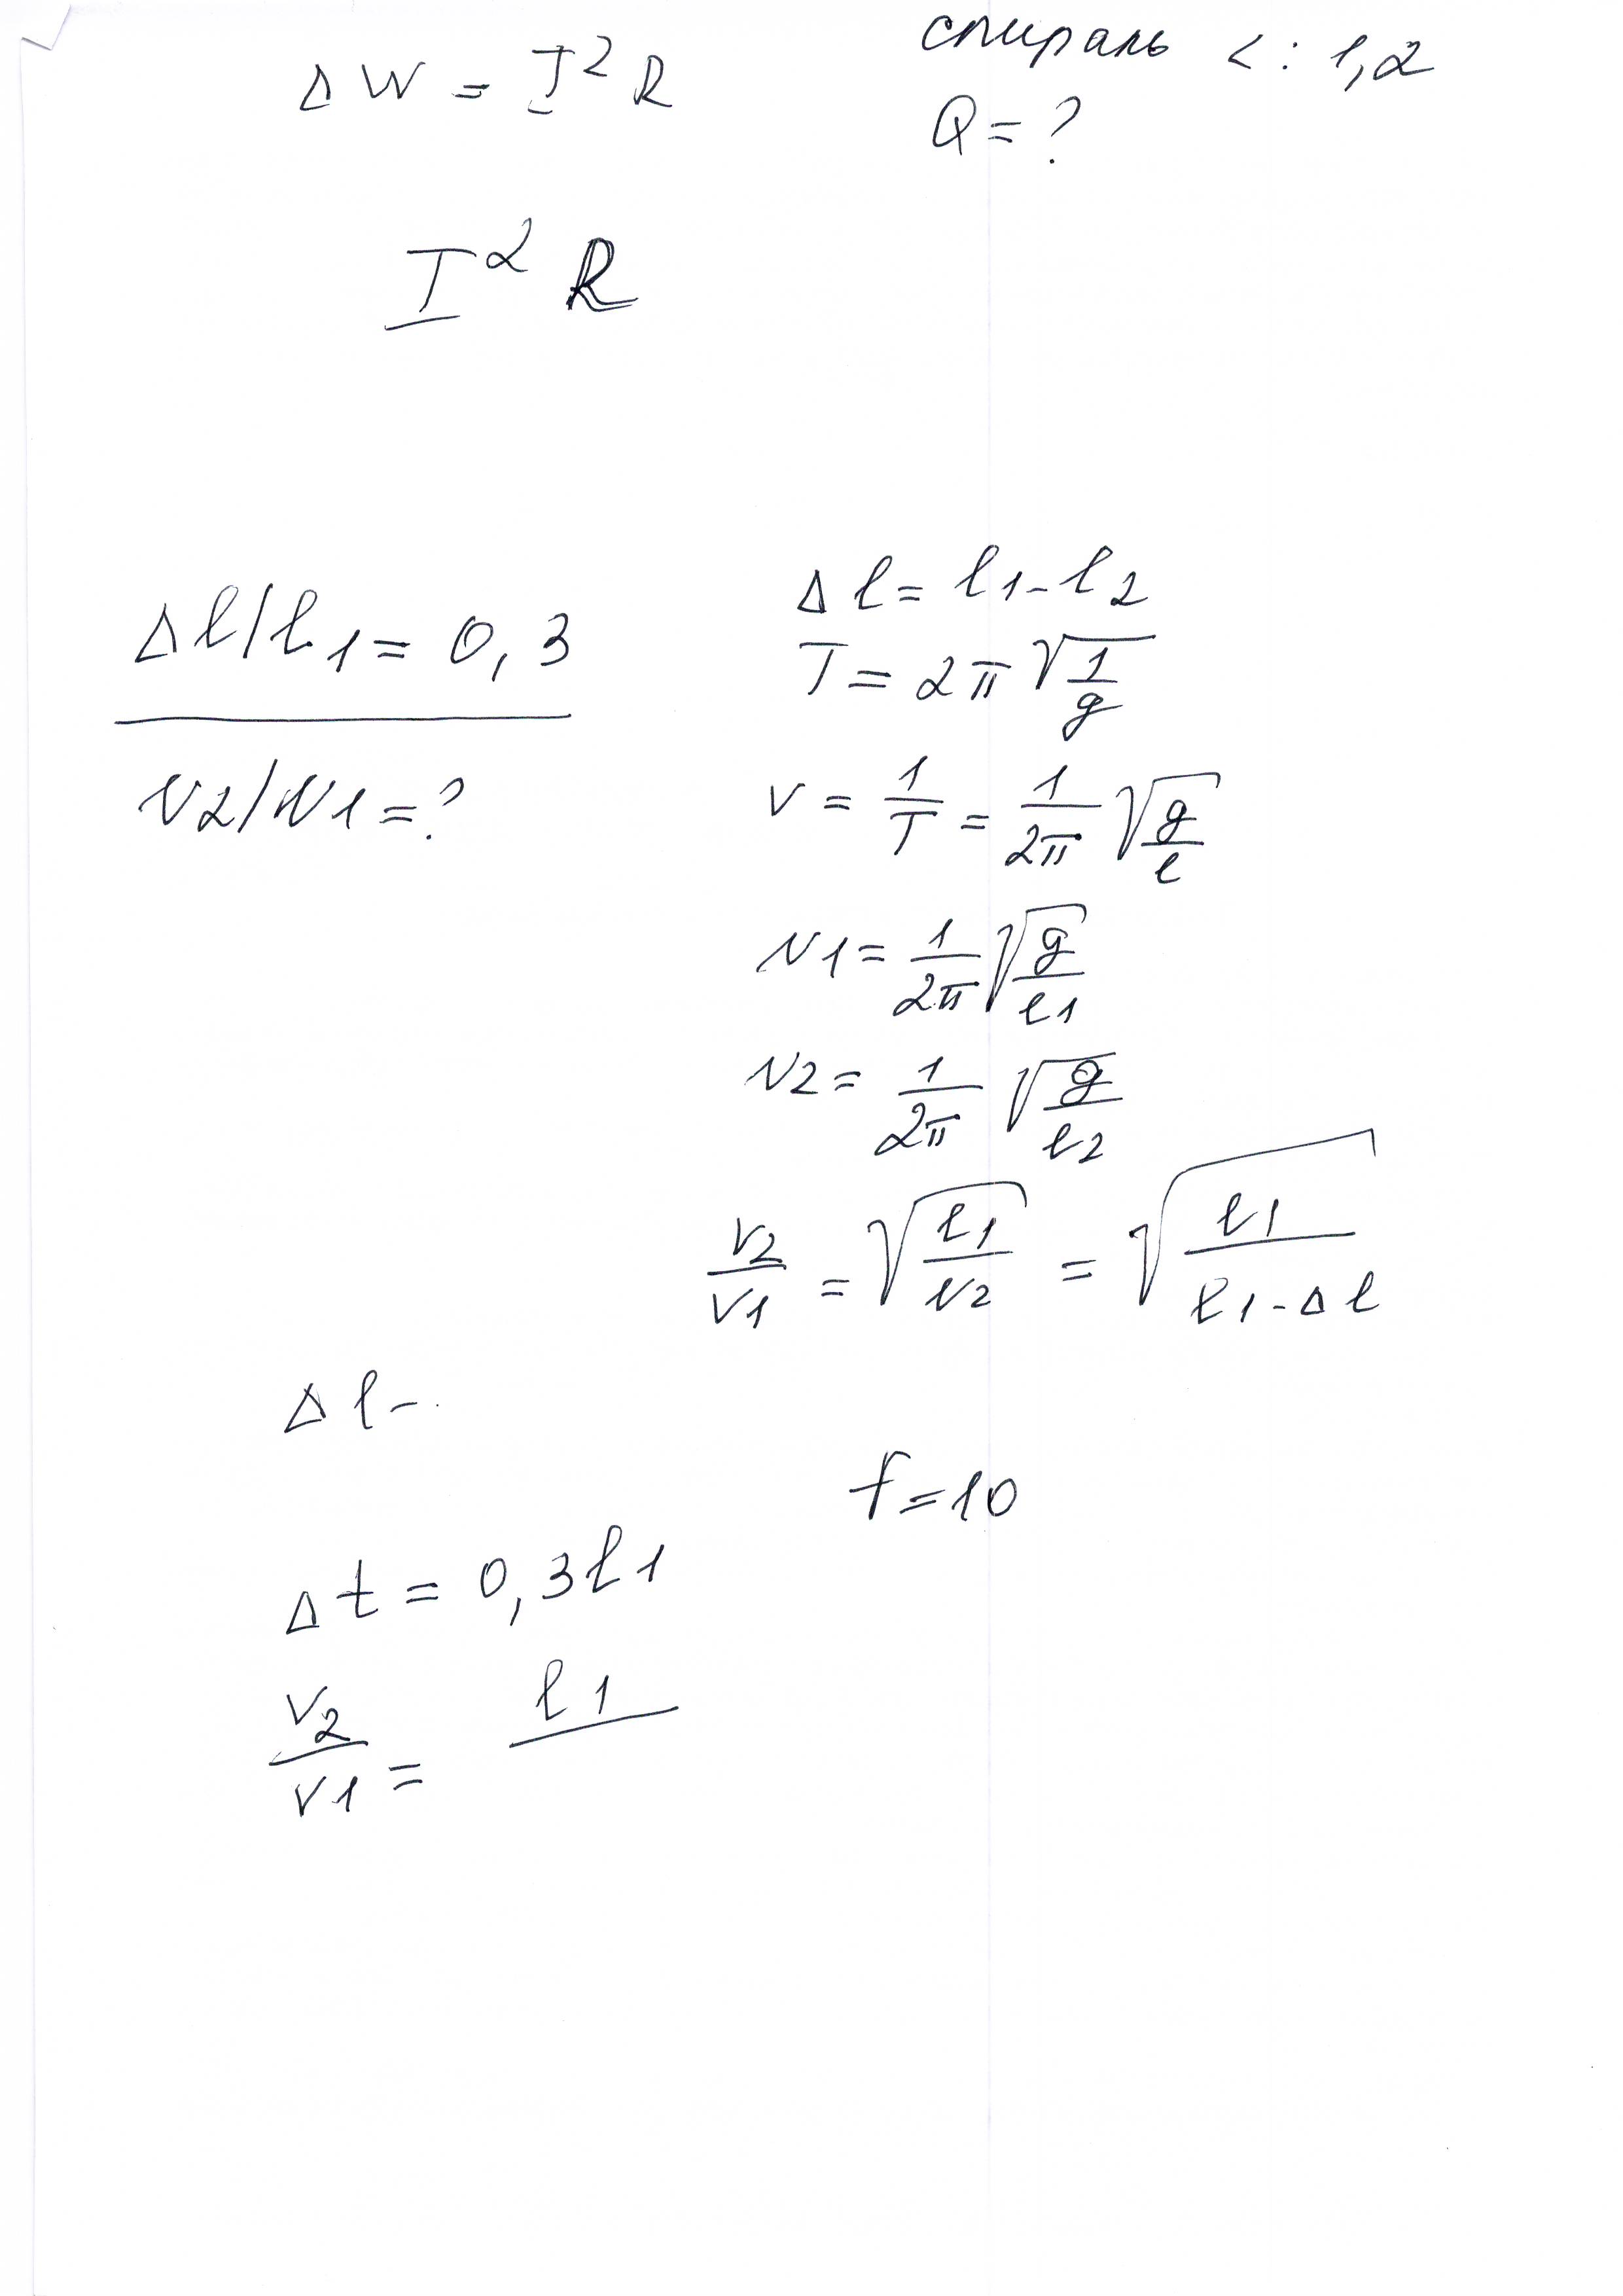 ΔW = I²R
спираль <: 1,2
Q = ?
I² R
Δl/l1 = 0,3
v2/v1 = ?
Δl = l1 - l2
T = 2π√(1/g)
v = 1/T = 1/2π √(g/l)
v1 = 1/2π √(g/l1)
v2 = 1/2π √(g/l2)
v2/v1 = √(l1/v2) = √(l1/(l1 - Δl))
Δl -
f = 10
Δt = 0,3l1
v2/v1 = l1/